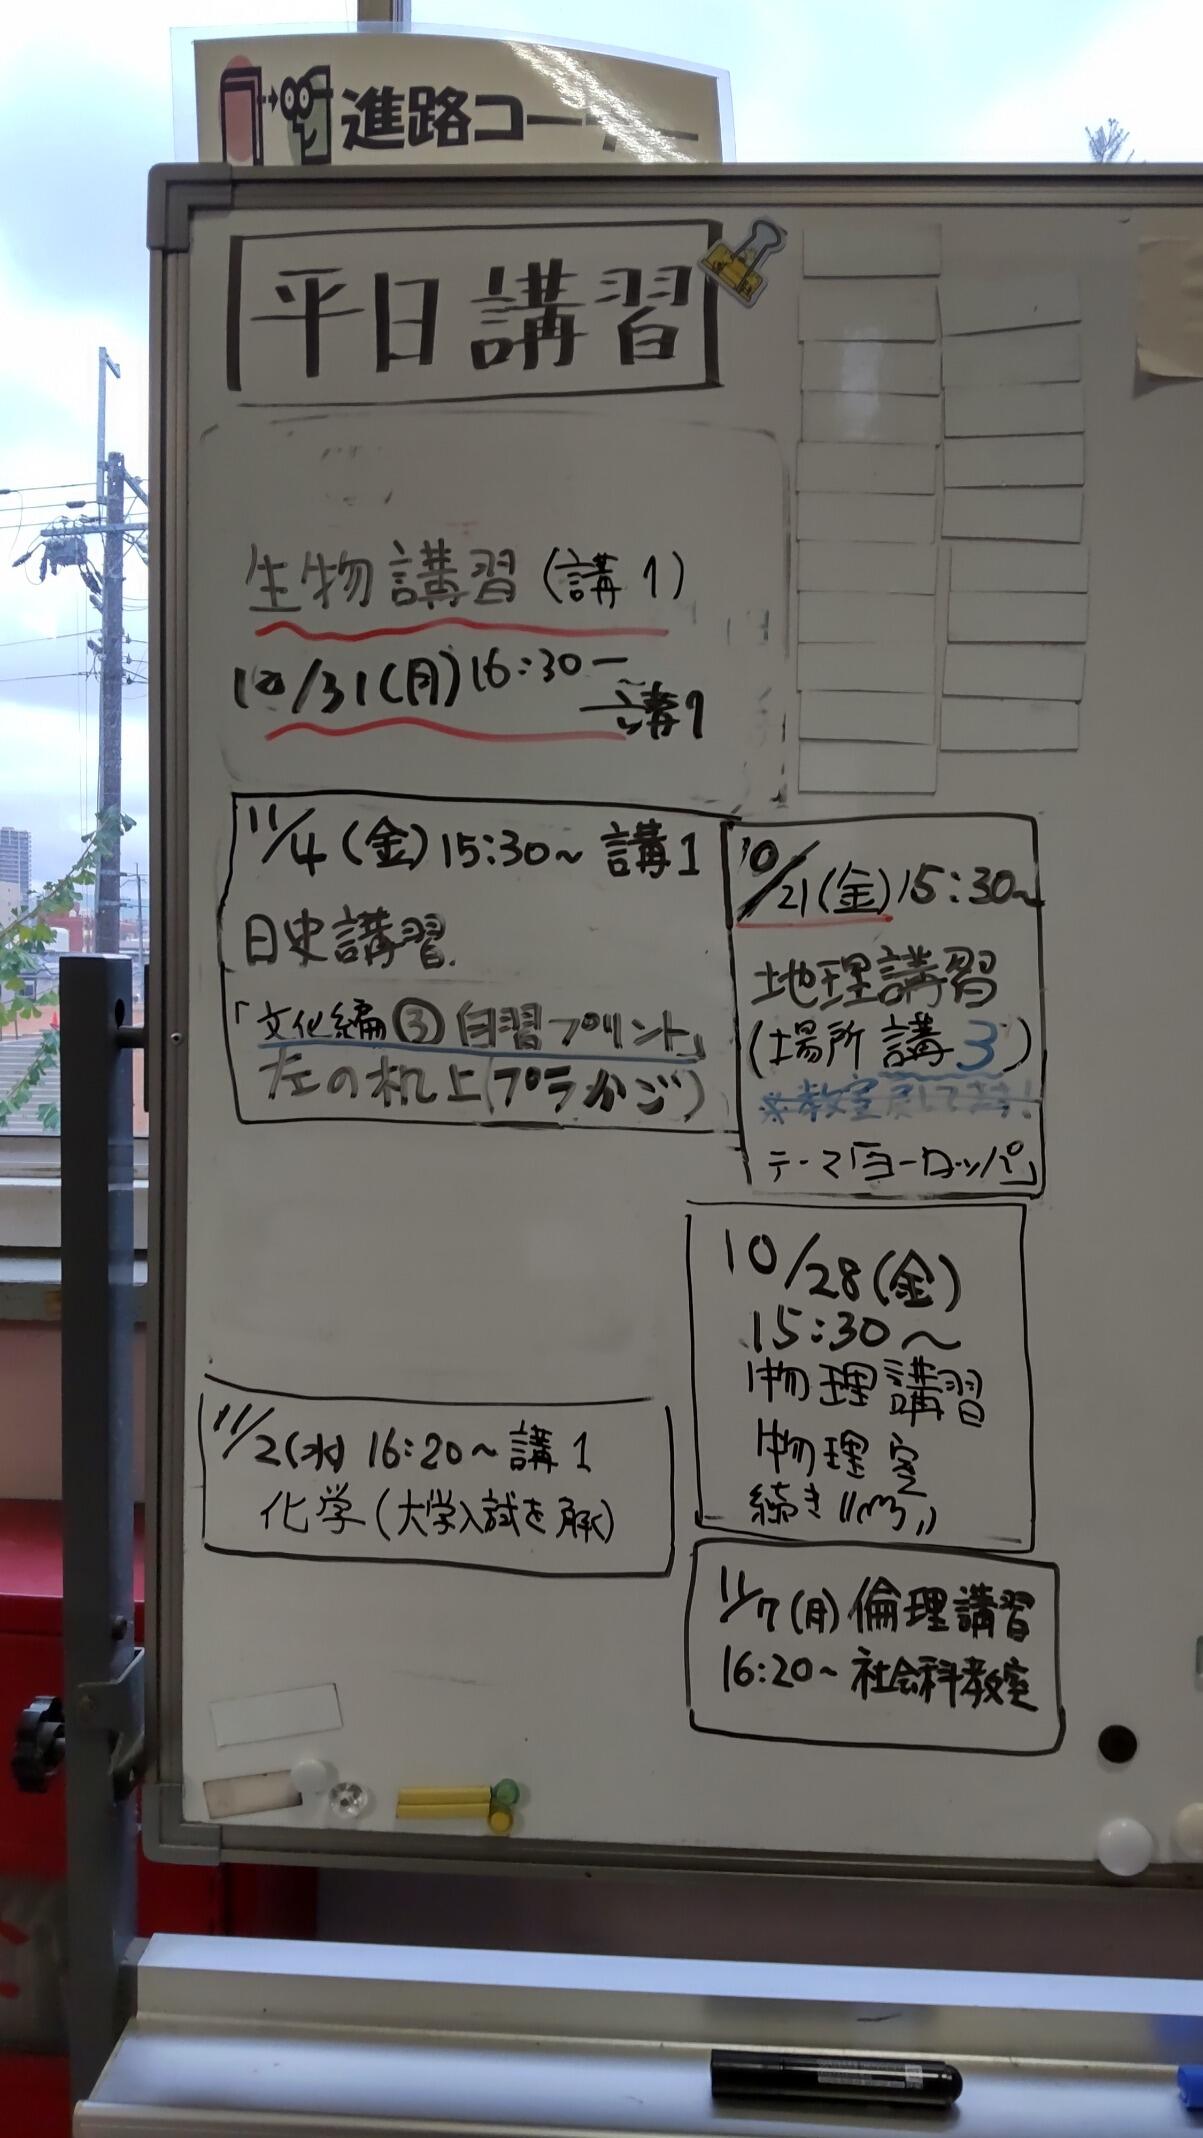 進路コーナー
平日講習
生物講習(講1)
10/31(月)16:30〜
講1
11/4(金)15:30~ 講1
日史講習.
「文化編③自習プリント」
左の机上(プラかご)
10/21(金)15:30~
地理講習
(場所 講3)
※教室戻してます!
テーマ「ヨーロッパ」
10/28(金)
15:30~
物理講習
物理室
続き
11/2(水) 16:20~ 講1
化学(大学入試を解く)
11/7(月) 倫理講習
16:20~ 社会科教室